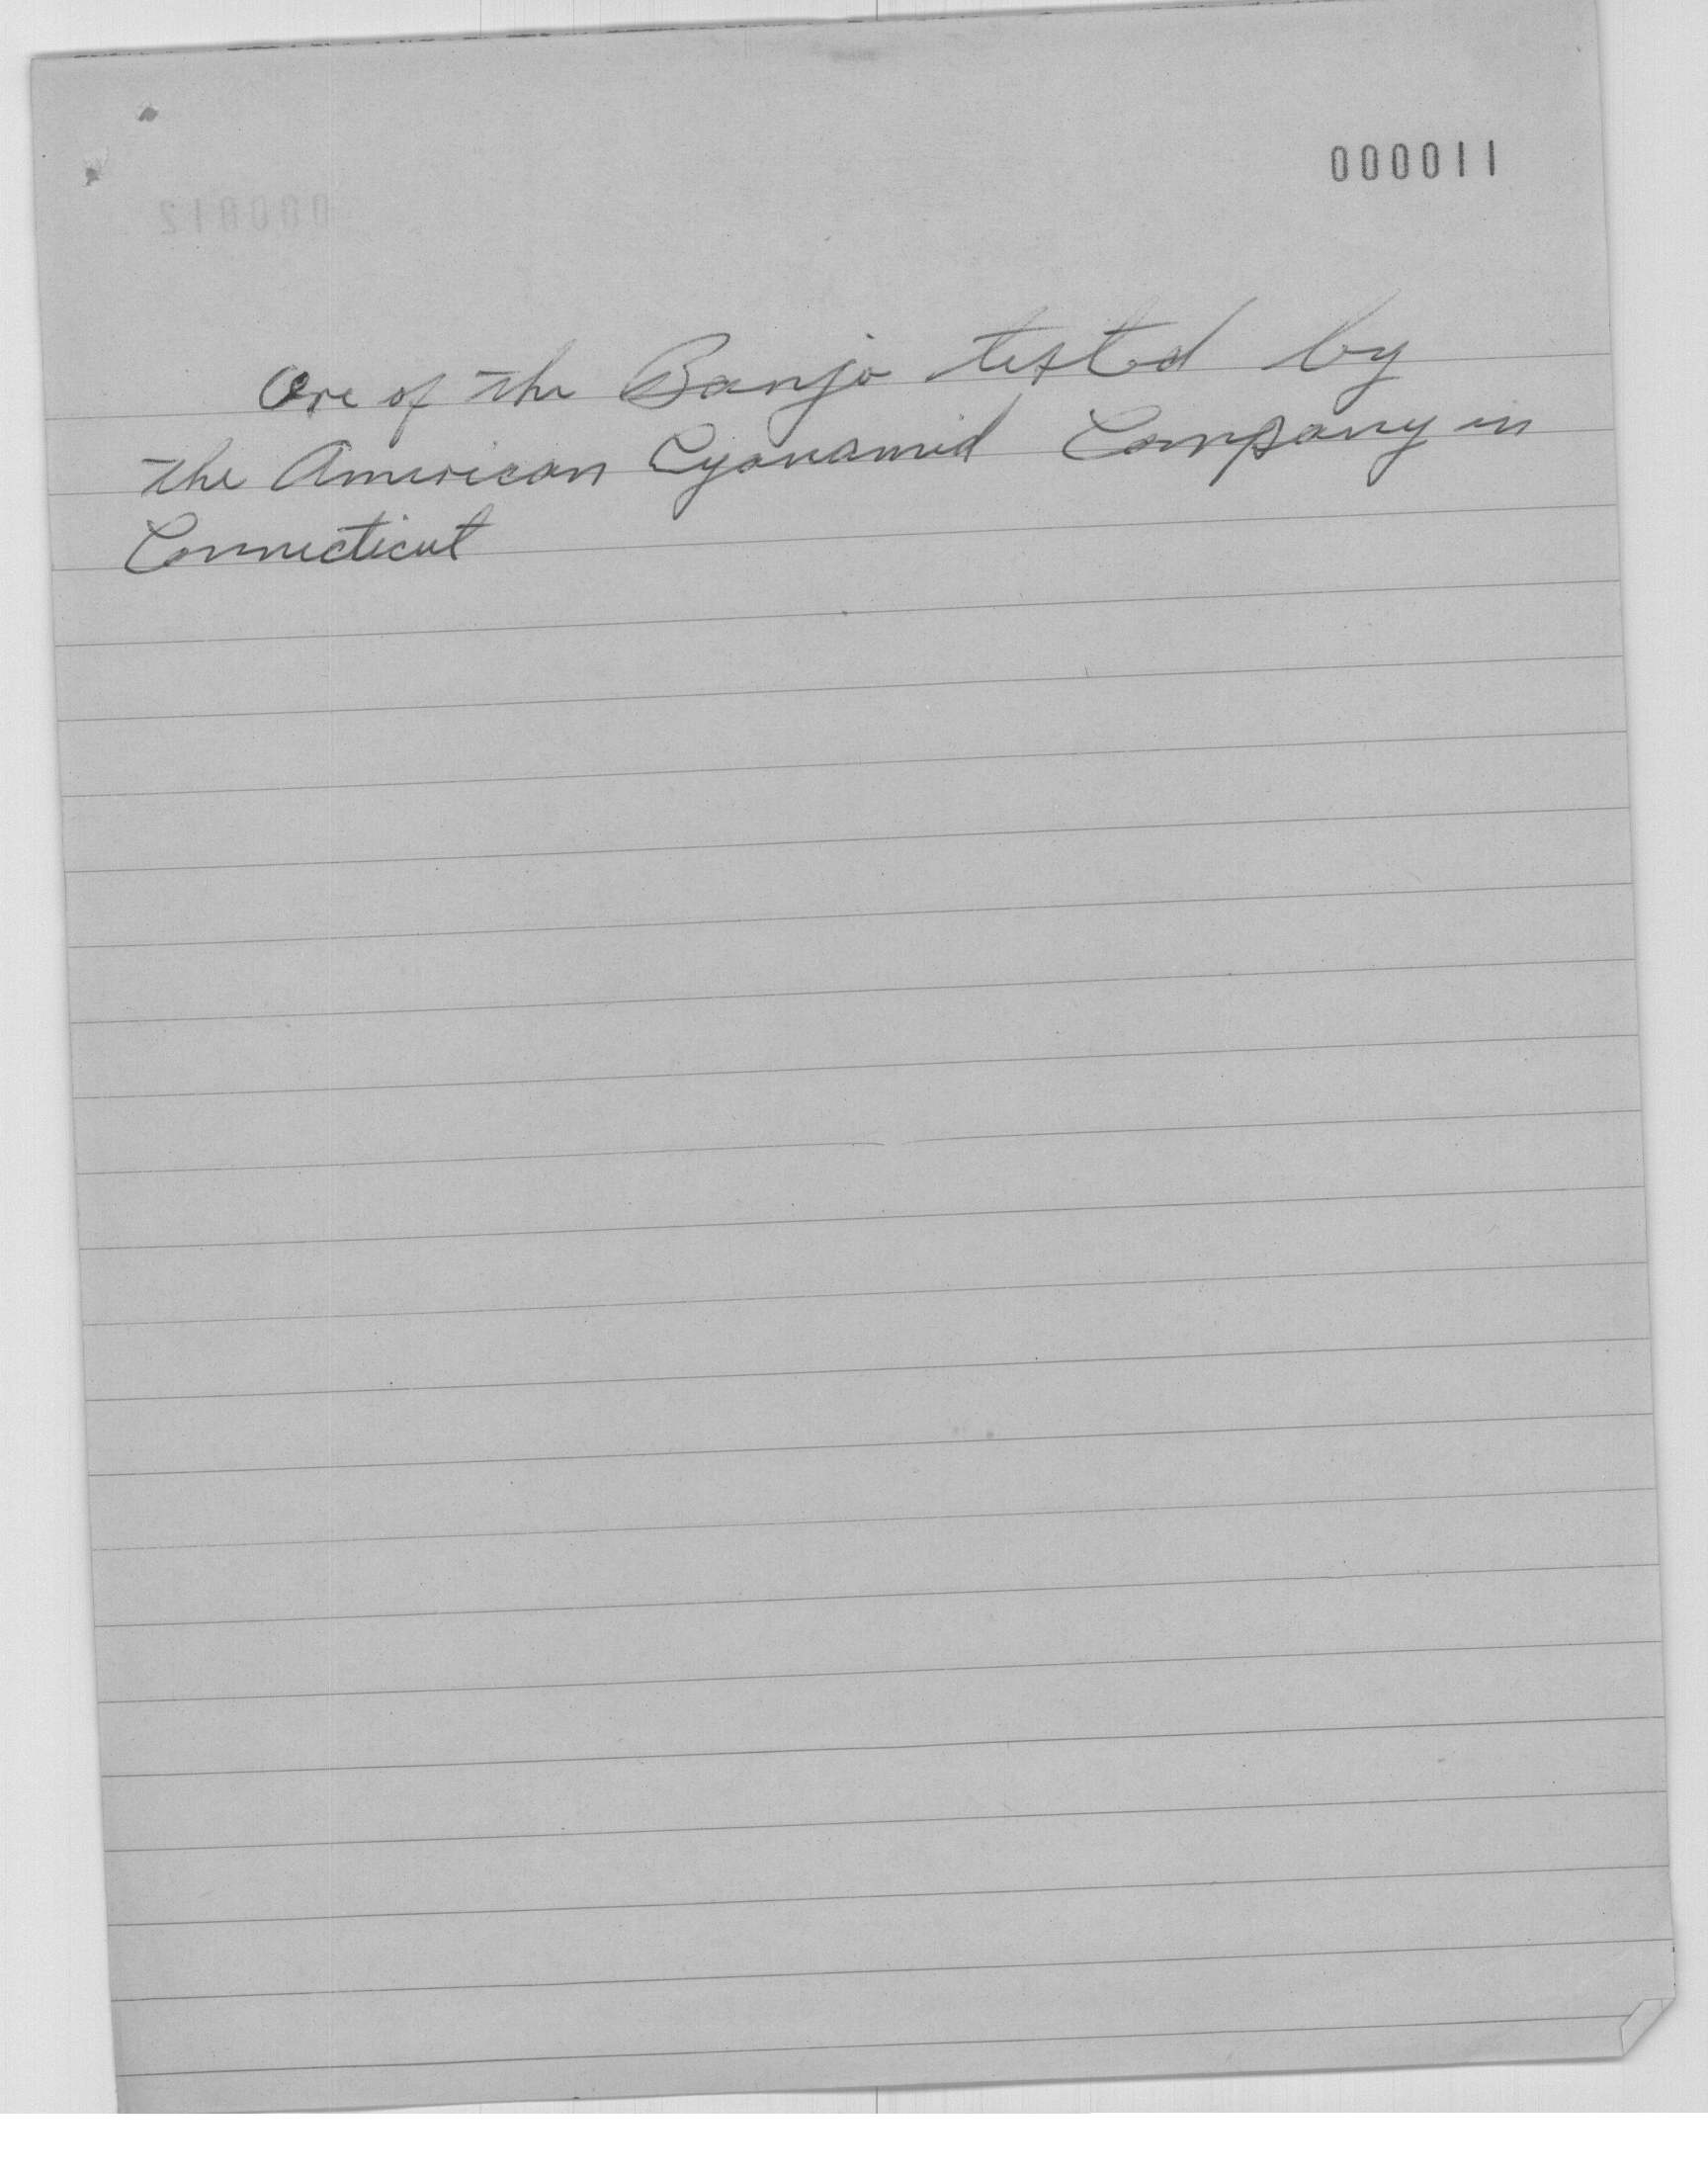 000011
000012
Ore of the Banjo tested by
the American Cyanamid Company in
Connecticut